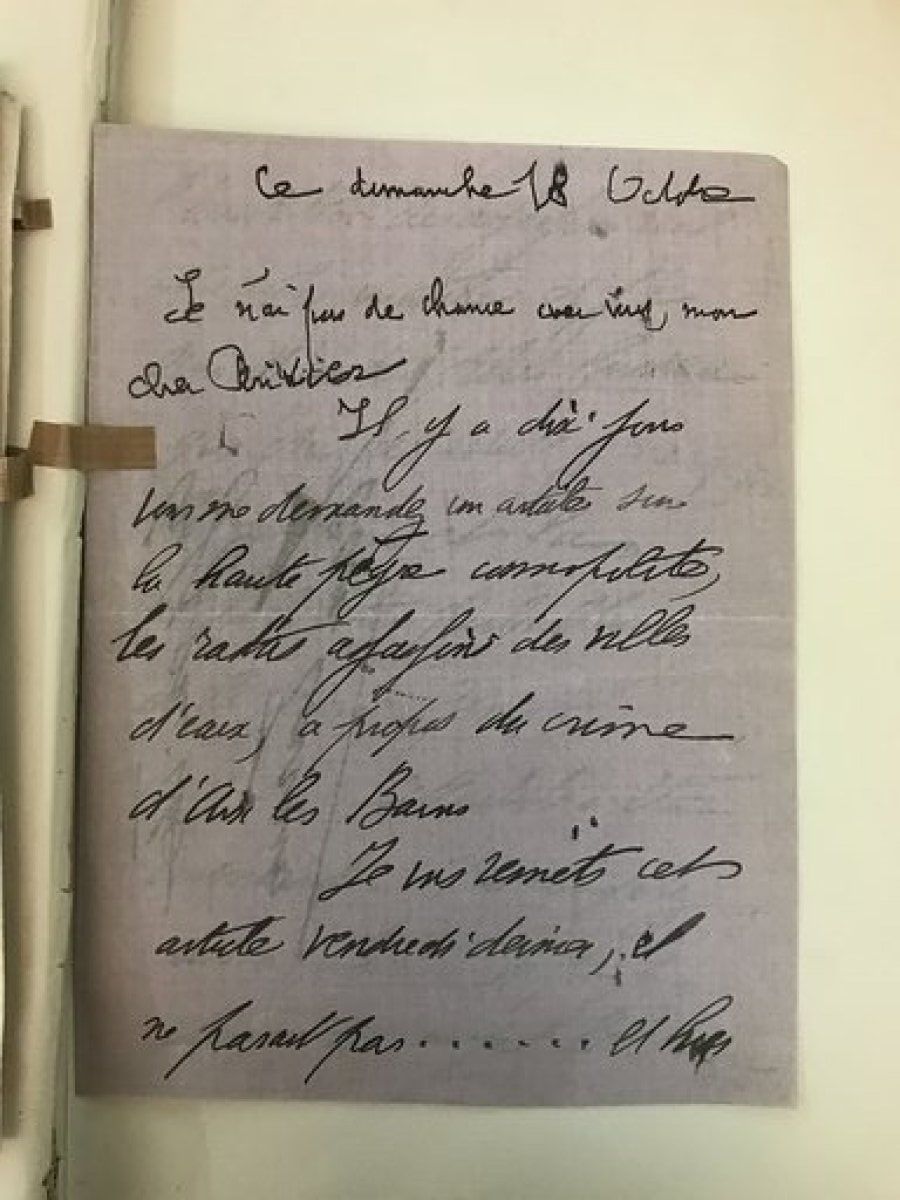 Ce dimanche 18 Octobre
Je n'ai pas de chance avec vous, mon
cher
Il y a dix jours
vous me demandez un article sur
la haute pègre cosmopolite,
les rastas assassins des villes
d'eaux, à propos du crime
d'Aix les Bains
Je vous remets cet
article vendredi dernier, il
ne parait pas....... et